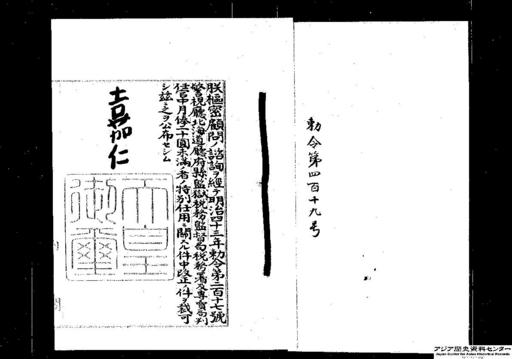 勅令第四百十九号
朕樞密顧問ノ諮詢ヲ經テ明治四十三年勅令第二百十七號
警視廳北海道廳府縣監獄稅務監督局稅務署及專賣局判
任官中月俸二十圓未滿ノ者ノ特別任用ニ關スル件中改正ノ件ヲ裁可
シ玆ニ之ヲ公布セシム
嘉仁
天皇御璽
アジア歴史資料センター
Japan Center for Asian Historical Records